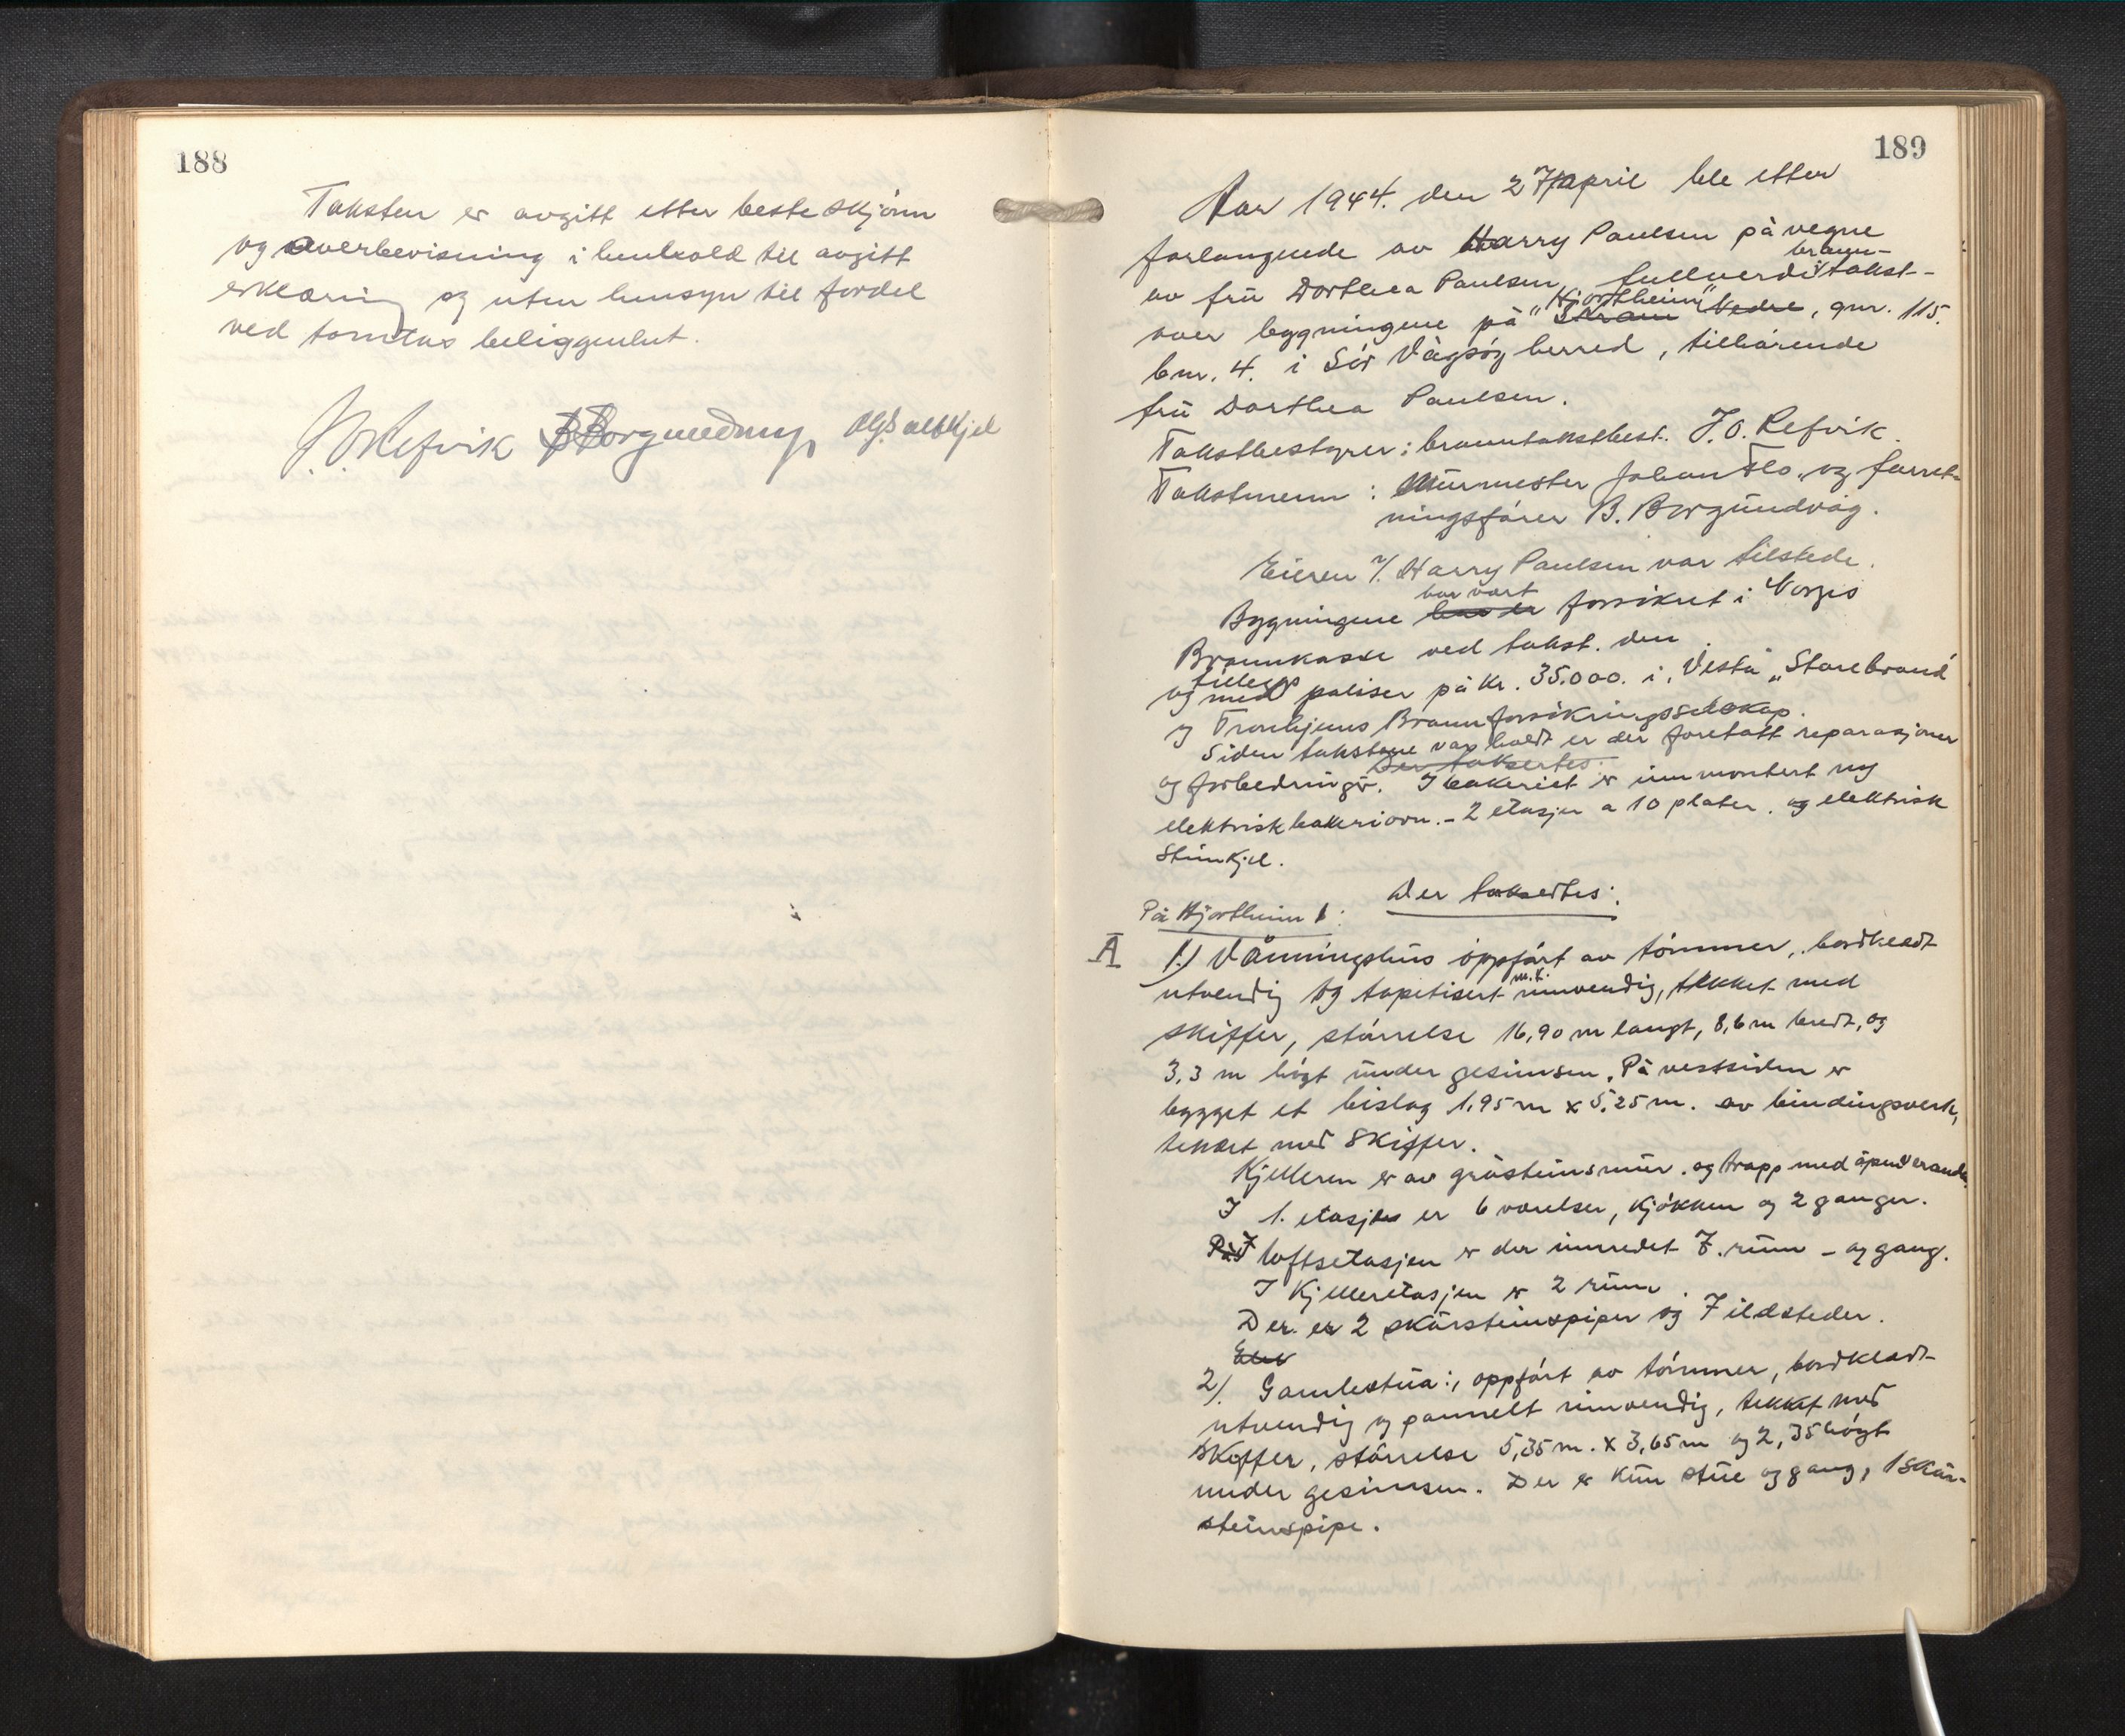 188
Taksten er avgitt etter beste skjønn
og overbevisning i henhold til avgitt
erklæring og uten hensyn til fordel
ved tomtens beliggenhet.
J. O. Refvik B Borgundvåg
189
Aar 1944. den 27 april ble etter
forlangende av Harry Paulsen på vegne
brann-
av frü Dorthea Paulsen, fullverdi takst-
"Hjortheim"
over bygningene på "Skram Nedre, gnr. 115.
bnr. 4. i Sör Vågsöy herred, tilhörende
frü Dorthea Paulsen.
Takstbestyrer: branntakstbest. J. O. Refvik.
Takstmenn: Mürmester Johan Flo, og forret-
ningsförer B. Borgündvåg.
Eieren v/. Harry Paulsen var tilstede.
har vært
Bygningene har er forsikret i Norges
Brannkasse ved takst. den .
tillegs
og med poliser på kr. 35.000. i "Vesta" "Storebrand"
og Tronhjems Brannforsikringsselskap.
Siden takstene var holdt er der foretatt reparasjoner
Der taksertes:
og forbedringer. I bakeriet er innmontert ny
elektrisk bakeriovn. - 2 etasjer a 10 plater. og elektrisk
Stimkjel.
Der taksertes:
På Hjortheim 1:
A 1.) Vånningshüs oppfört av tömmer, bordkledt
m.v.
utvendig og tapetisert innvendig, tekket med
skiffer, störrelse 16,90 m langt, 8,6 m bredt, og
3,3 m högt ünder gesimsen. På vestsiden er
bygget et bislag 1,95 m x 5,25 m. av bindingsverk,
tekket med Skiffer.
Kjelleren er av gråsteinsmür. og trapp med åpen veranda.
I 1. etasjen er 6 værelser, kjökken og 2 ganger.
På I loftsetasjen er der innredet 7. rüm - og gang.
I Kjelleretasjen er 2 rüm.
Der er 2 skårsteinspiper og 7 ildsteder.
2). Gamlestüa:, oppfört av tömmer, bordkledt
utvendig og pannelt innvendig, tekket med
Skiffer, störrelse 5,35 m. x 3,65 m og 2,35 högt
under gesimsen. Der er kün stüe og gang, 1 skår-
steinspipe.